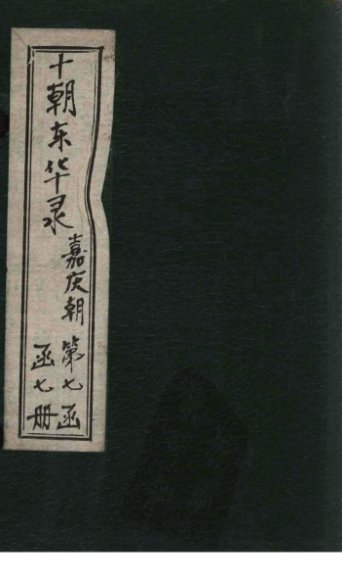 十朝东华录
嘉庆朝
第七函
函七册